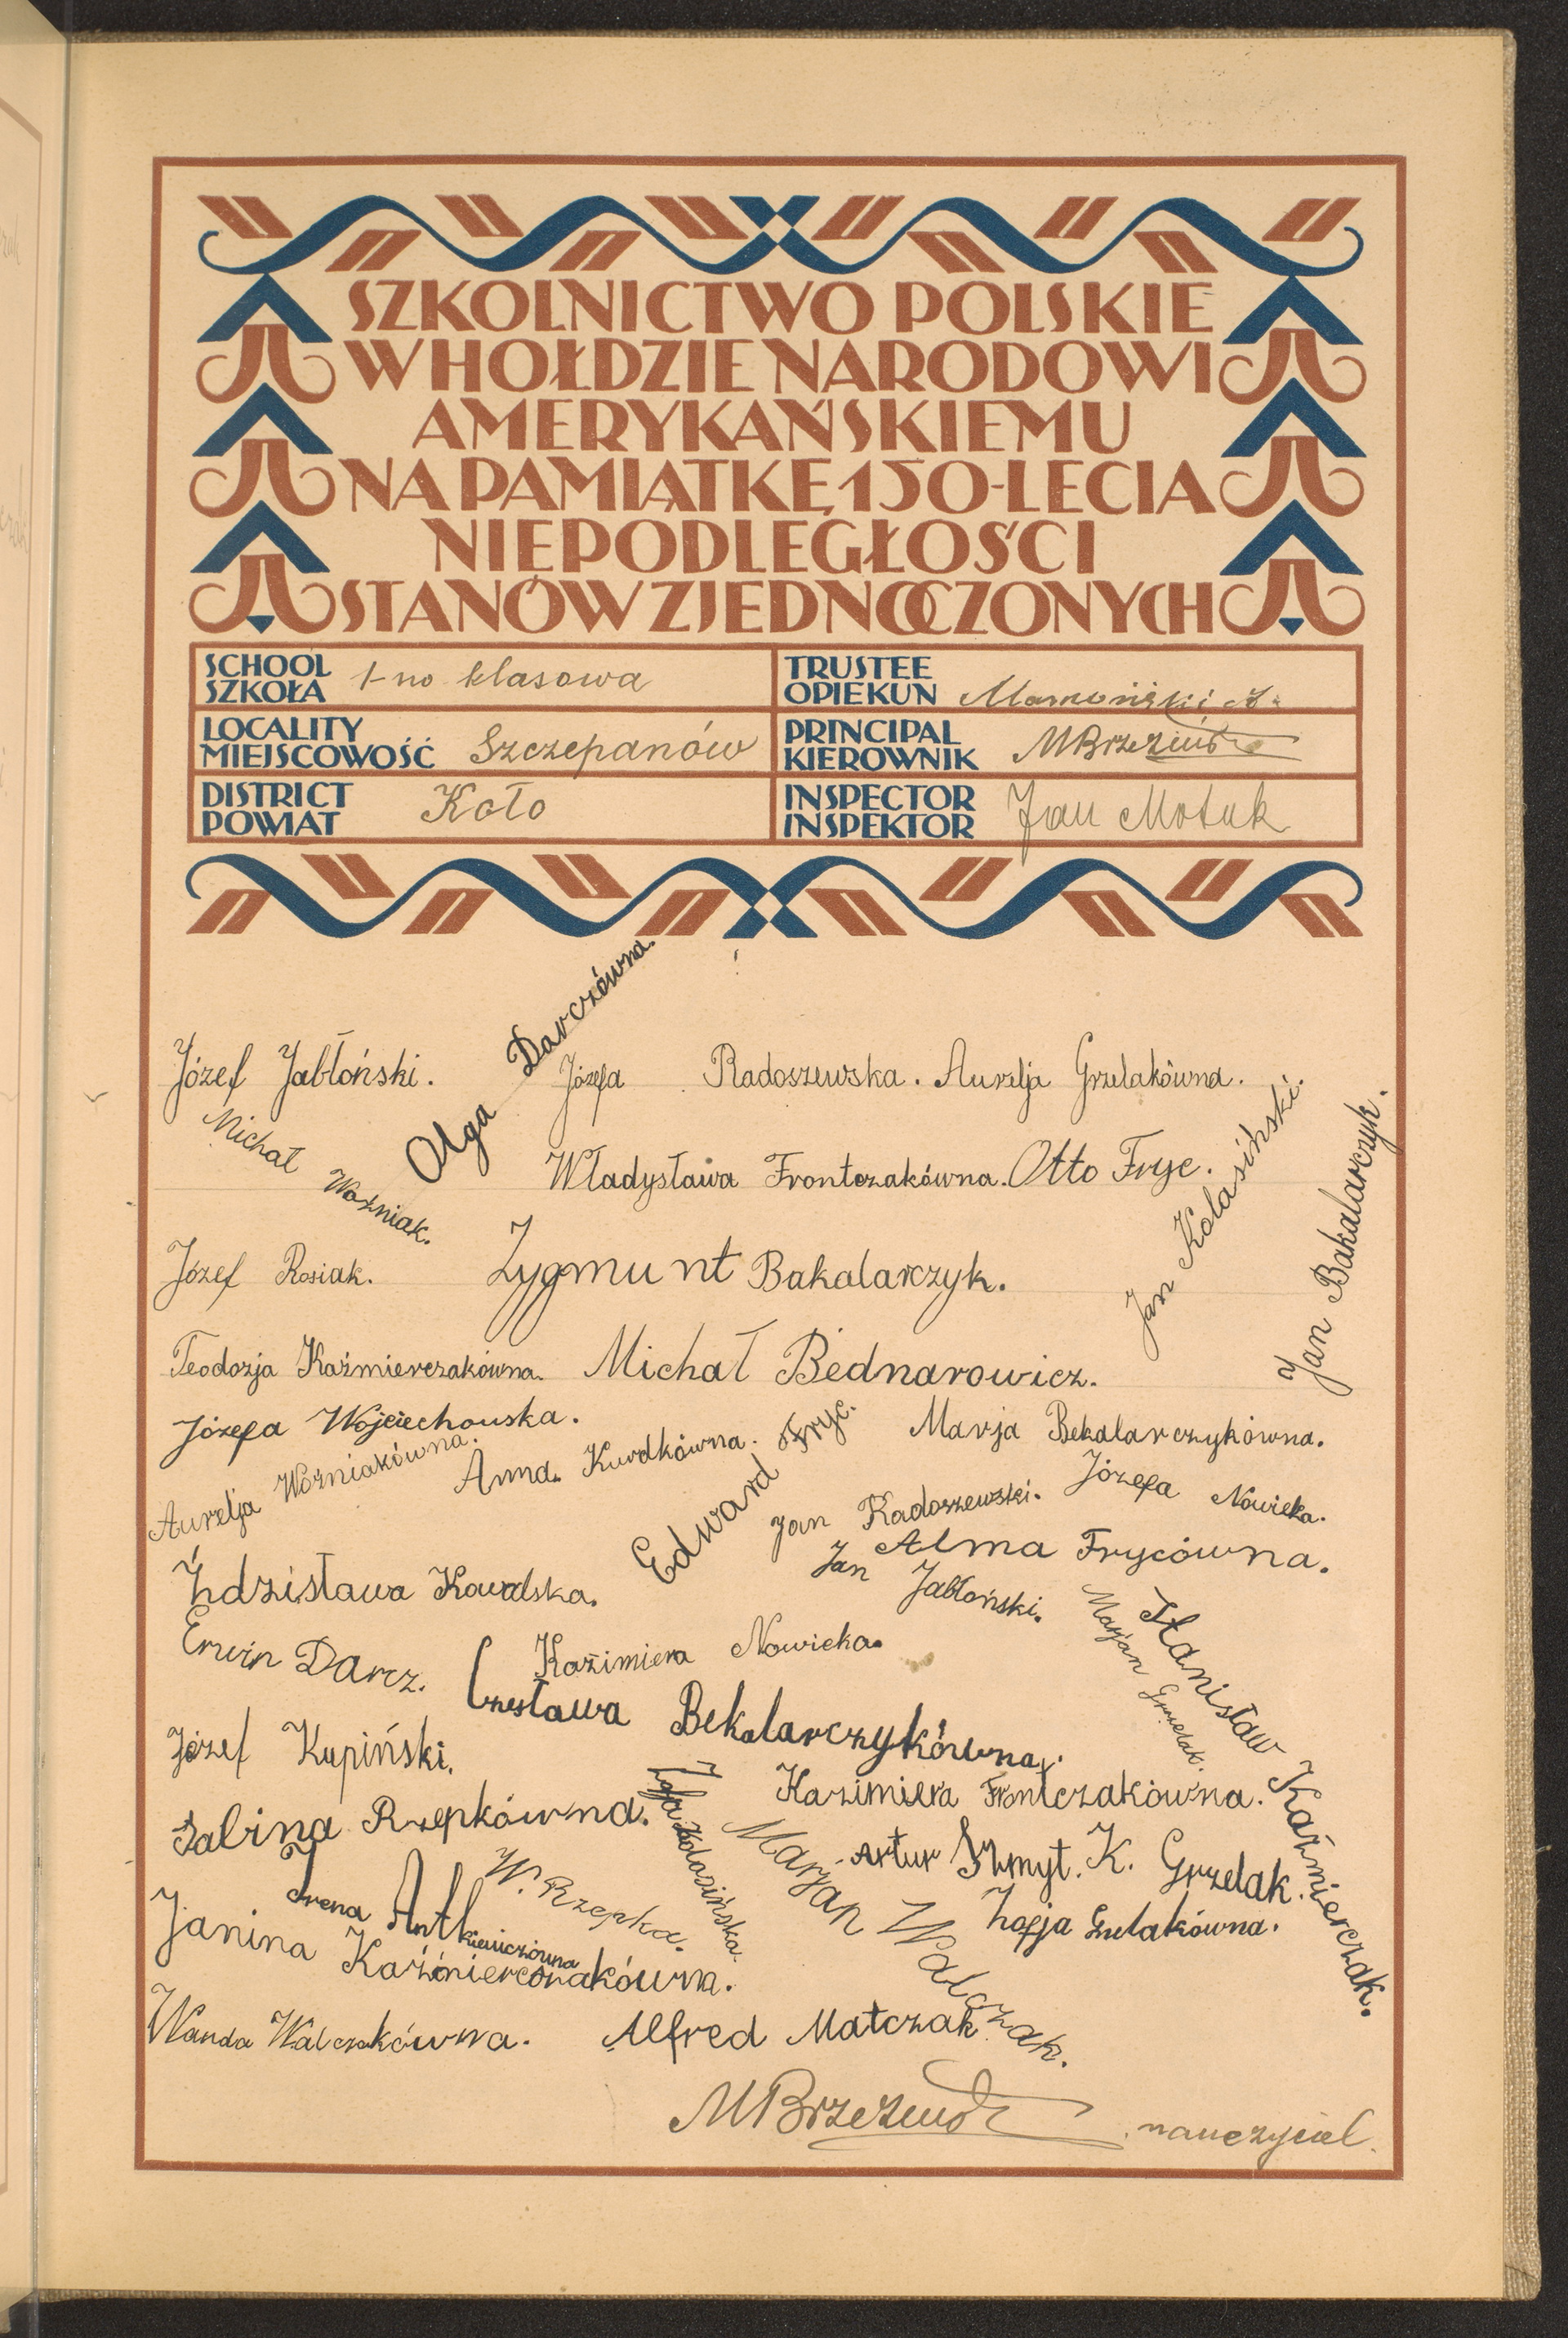 SZKOLNICTWO POLSKIE
W HOŁDZIE NARODOWI
AMERYKAŃSKIEMU
NA PAMIĄTKĘ 150-LECIA
NIEPODLEGŁOŚCI
STANÓW ZJEDNOCZONYCH
SCHOOL
SZKOŁA 1-no klasowa
TRUSTEE
OPIEKUN
LOCALITY
MIEJSCOWOŚĆ Szczepanów
PRINCIPAL
KIEROWNIK
DISTRICT
POWIAT Koło
INSPECTOR
INSPEKTOR Jan
Olga Darczówna.
Józef Jabłoński.
Józefa Radoszewska. Aurelja Grzelakówna.
Michał Woźniak.
Władysława Frontczakówna. Otto Fryc.
Jan Kolasiński.
Jan Bakalarczyk.
Józef Rosiak. Zygmunt Bakalarczyk.
Teodozja Kaźmierczakówna. Michał Bednarowicz.
Józefa Wojciechowska.
Aurelja Woźniakówna.
Anna Kurdkówna.
Edward Fryc.
Marja Bekalarczykówna.
Jan Radoszewski.
Józefa Nowicka.
Alma Frycówna.
Jan Jabłoński.
Zdzisława Kowalska.
Erwin Darcz.
Kazimiera Nowicka.
Marjan Grzelak.
Stanisław Kaźmierczak.
Czesława Bekalarczykówna.
Józef Kupiński.
Kazimiera Frontczakówna.
Sabina Rzepkówna.
Zofja Kolasińska.
Marjan Walczak.
Artur Szmyt. K. Grzelak.
W. Rzepka.
Irena Antkiewiczówna
Zofja Grzelakówna.
Janina Kaźmierczakówna.
Wanda Walczakówna. Alfred Matczak.
nauczyciel.